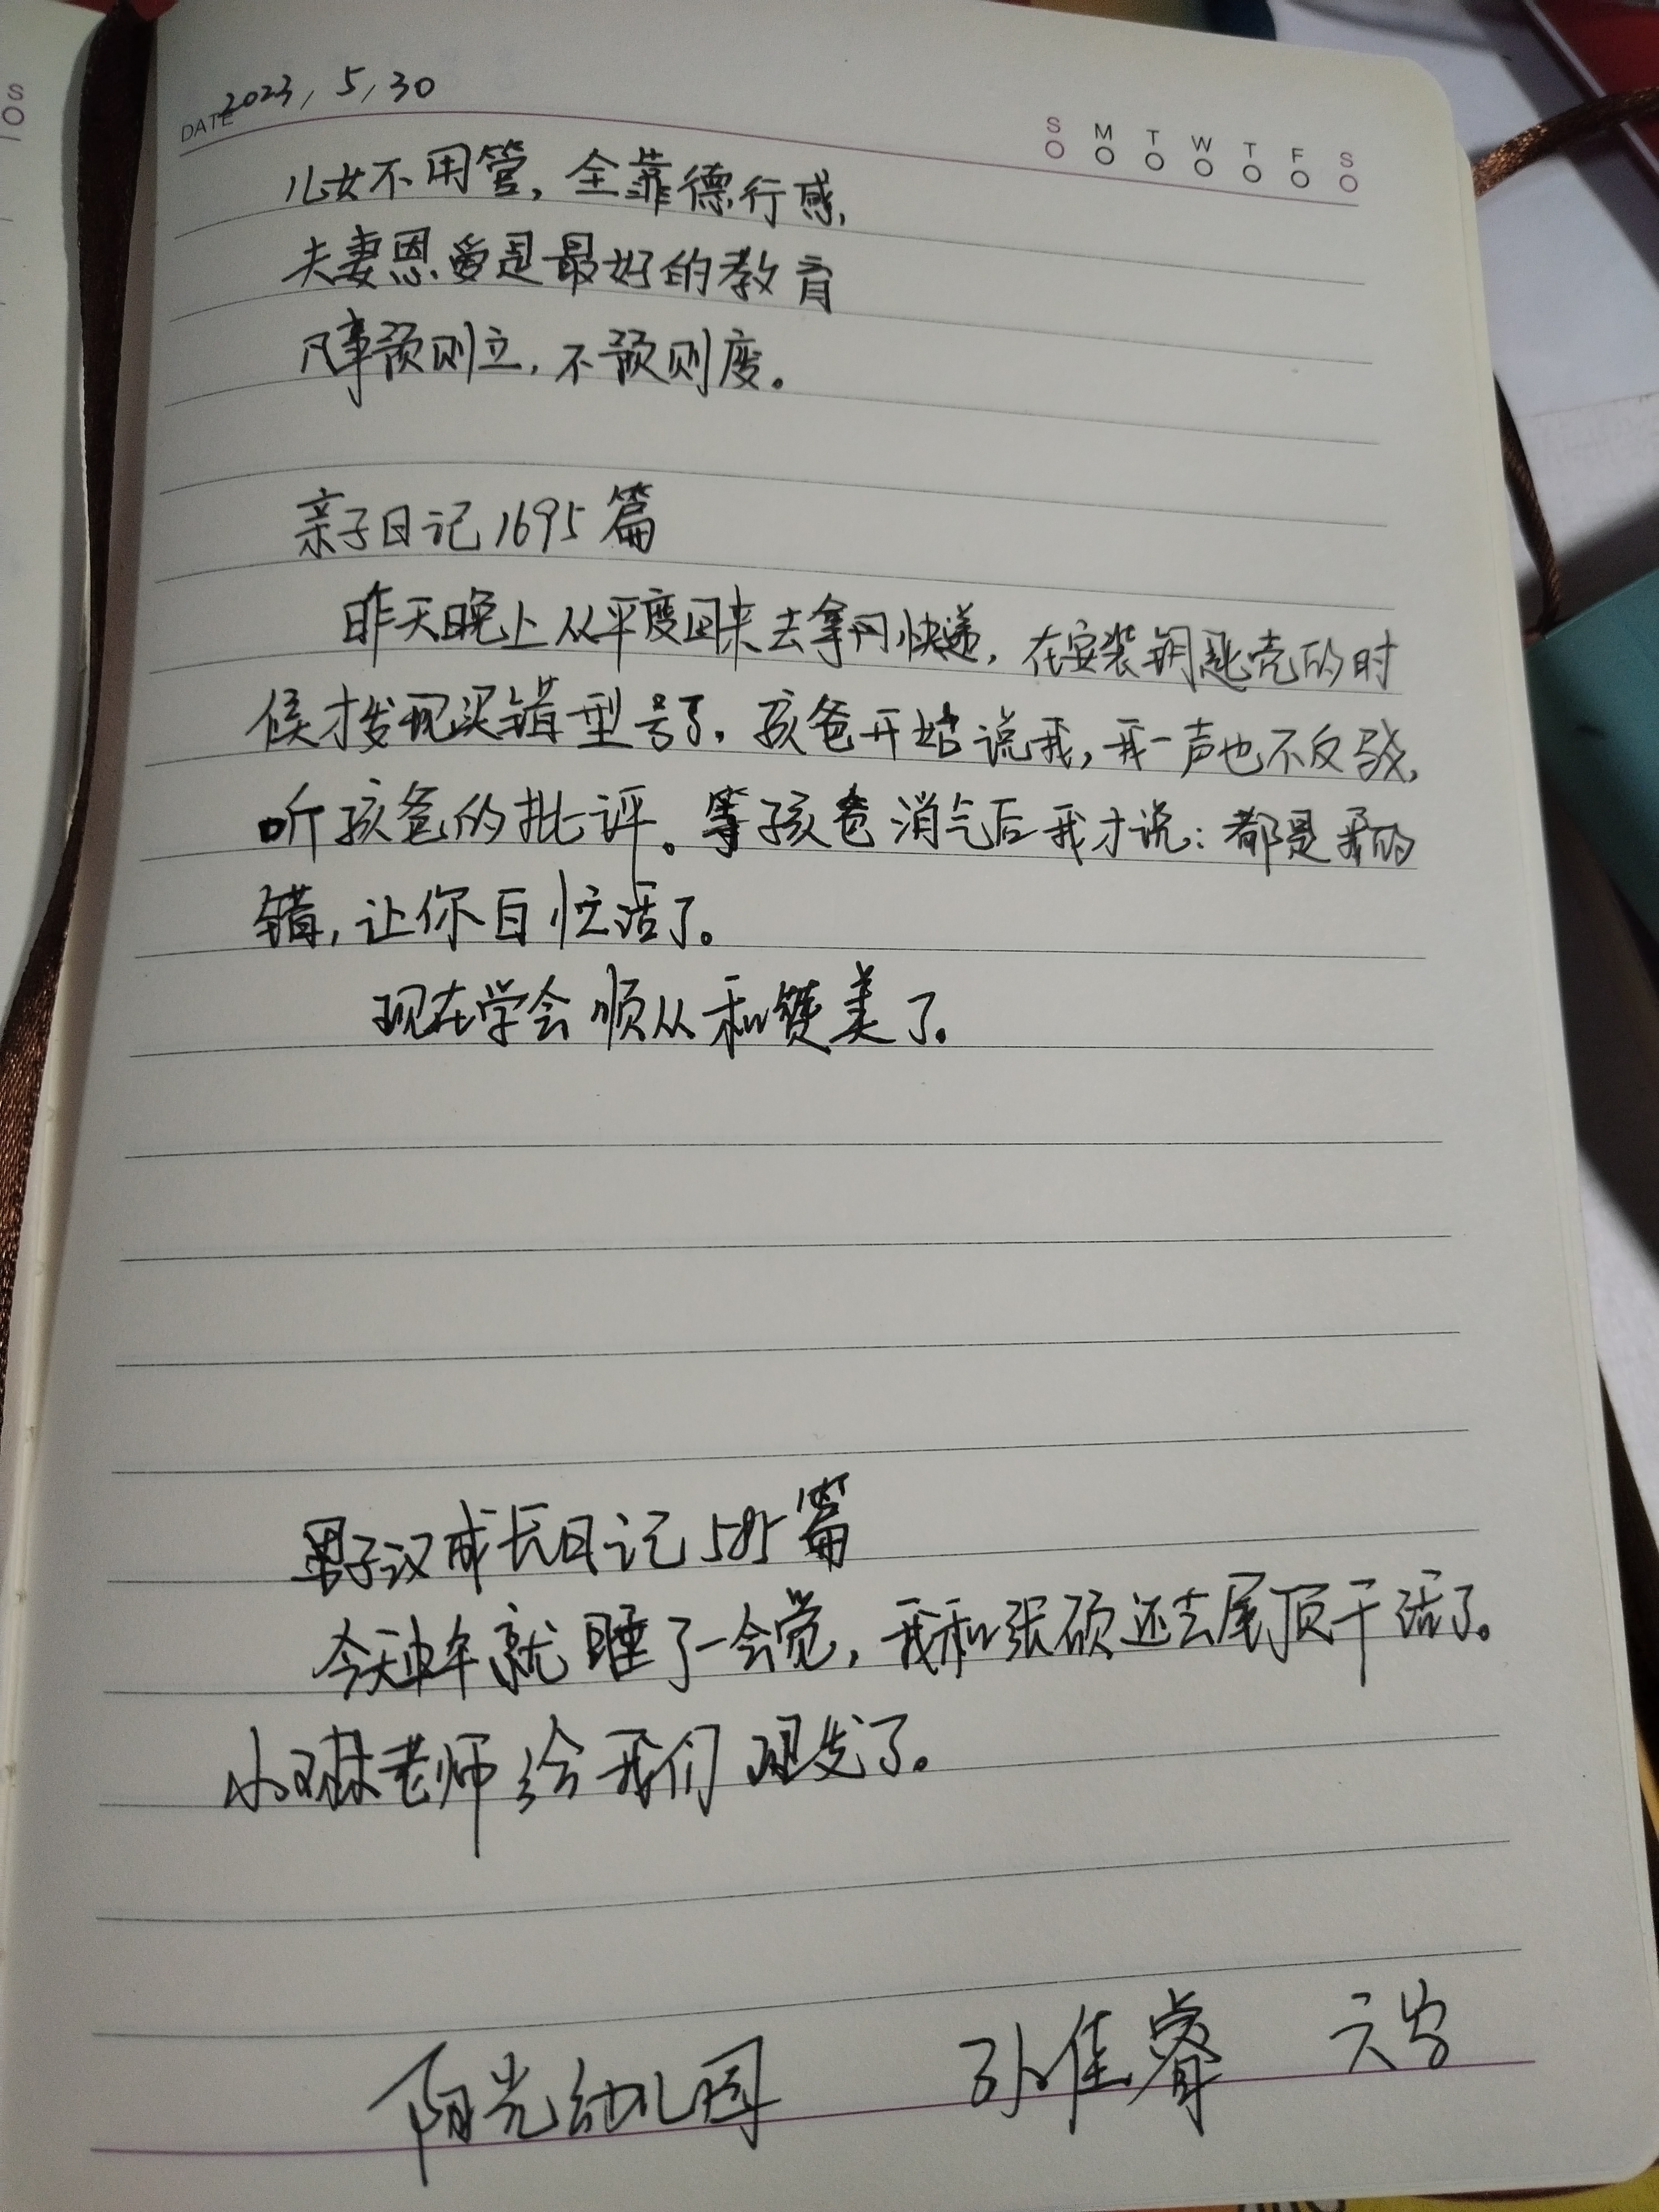 DATE 2023,5,30
S M T W T F S
儿女不用管,全靠德行感,
夫妻恩爱是最好的教育
凡事预则立,不预则废。
亲子日记1695篇
昨天晚上从平度回来去拿网快递,在安装钥匙壳的时
候才发现买错型号了,孩爸开始说我,我一声也不反驳,
听孩爸的批评。等孩爸消气后我才说:都是我的
错,让你白忙活了。
现在学会顺从和赞美了。
男子汉成长日记585篇
今天中午就睡了一会觉,我和张硕还去屋顶干活了。
小琳老师给我们理发了。
阳光幼儿园 孙佳睿 六岁